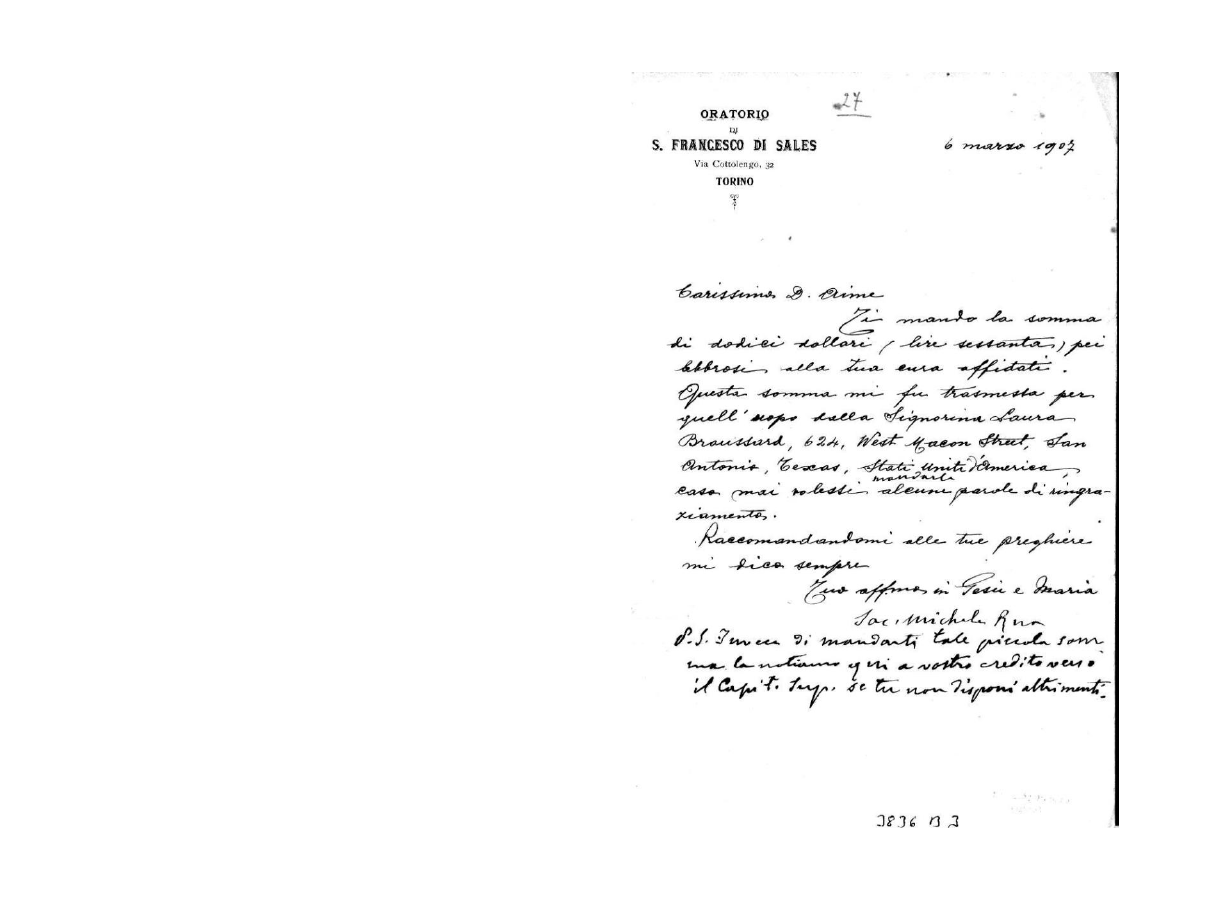 27
ORATORIO
DI
S. FRANCESCO DI SALES
Via Cottolengo, 32
TORINO
6 marzo 1907
Carissimo D. Aime
Ti mando la somma
di dodici dollari (lire sessanta) pei
lebbrosi alla tua cura affidati.
Questa somma mi fu trasmessa per
quell'uopo dalla Signorina Laura
Broussard, 624, West Macon Street, San
Antonio, Texas, Stati Uniti d'America,
mandarle
caso mai volessi alcune parole di ringra-
ziamento.
Raccomandandomi alle tue preghiere
mi dico sempre
Tuo affmo in Gesù e Maria
Sac. Michele Rua
P.S. Invece di mandarti tale piccola som
ma la notiamo qui a vostro credito verso
il Capit. Sup. se tu non disponi altrimenti.
3836 B 3